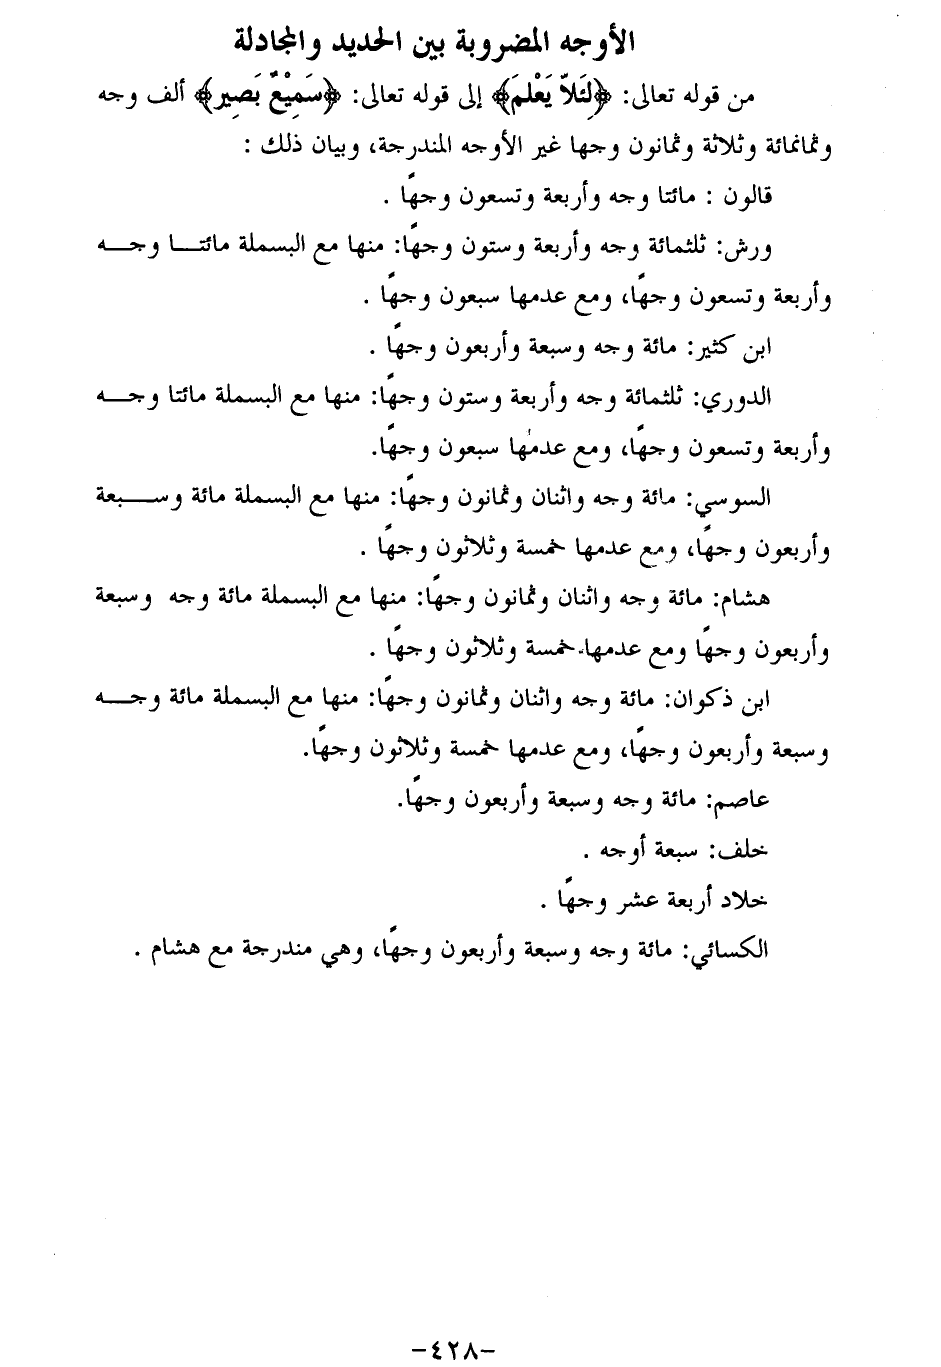 الأوجه المضروبة بين الحديد والمجادلة
من قوله تعالى: ﴿لِئَلاَّ يَعْلَمَ﴾ إلى قوله تعالى: ﴿سَمِيْعٌ بَصِير﴾ ألف وجه
وثمانمائة وثلاثة وثمانون وجها غير الأوجه المندرجة، وبيان ذلك :
قالون : مائتا وجه وأربعة وتسعون وجهًا .
ورش: ثلثمائة وجه وأربعة وستون وجهًا: منها مع البسملة مائتـــا وجـــه
وأربعة وتسعون وجهًا، ومع عدمها سبعون وجهًا .
ابن كثير: مائة وجه وسبعة وأربعون وجهًا .
الدوري: ثلثمائة وجه وأربعة وستون وجهًا: منها مع البسملة مائتا وجـــه
وأربعة وتسعون وجهًا، ومع عدمها سبعون وجهًا.
السوسي: مائة وجه واثنان وثمانون وجهًا: منها مع البسملة مائة وســـبعة
وأربعون وجهًا، ومع عدمها خمسة وثلاثون وجهًا .
هشام: مائة وجه واثنان وثمانون وجهًا: منها مع البسملة مائة وجه وسبعة
وأربعون وجهًا ومع عدمها خمسة وثلاثون وجهًا .
ابن ذكوان: مائة وجه واثنان وثمانون وجهًا: منها مع البسملة مائة وجـــه
وسبعة وأربعون وجهًا، ومع عدمها خمسة وثلاثون وجهًا.
عاصم: مائة وجه وسبعة وأربعون وجهًا.
خلف: سبعة أوجه .
خلاد أربعة عشر وجهًا .
الكسائي: مائة وجه وسبعة وأربعون وجهًا، وهي مندرجة مع هشام .
-٤٢٨-